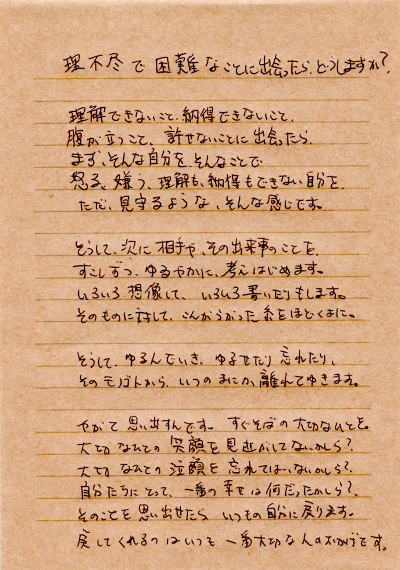 理不尽で困難なことに出会ったら、どうしますか?
理解できないこと、納得できないこと、
腹が立つこと、許せないことに出会ったら、
まず、そんな自分を、そんなことで
怒る、嫌う、理解も、納得もできない自分を、
ただ、見守るような、そんな感じです。
そうして、次に相手や、その出来事のことを、
すこしずつ、ゆるやかに、考えはじめます。
いろいろ想像して、いろいろ書いたりもします。
そのものに対して、こんがらがった糸をほどくまに。
そうして、ゆるんでいき、ゆるせたり忘れたり、
そのモノゴトから、いつのまにか離れてゆきます。
やがて思い出すんです。すぐそばの大切なひとを。
大切なひとの笑顔を見逃がしてないかしら?
大切なひとの泣顔を忘れてはいないかしら?
自分たちにとって、一番の幸せは何だったかしら?
そのことを思い出せたら、いつもの自分に戻ります。
戻してくれるのはいつも一番大切な人のおかげです。